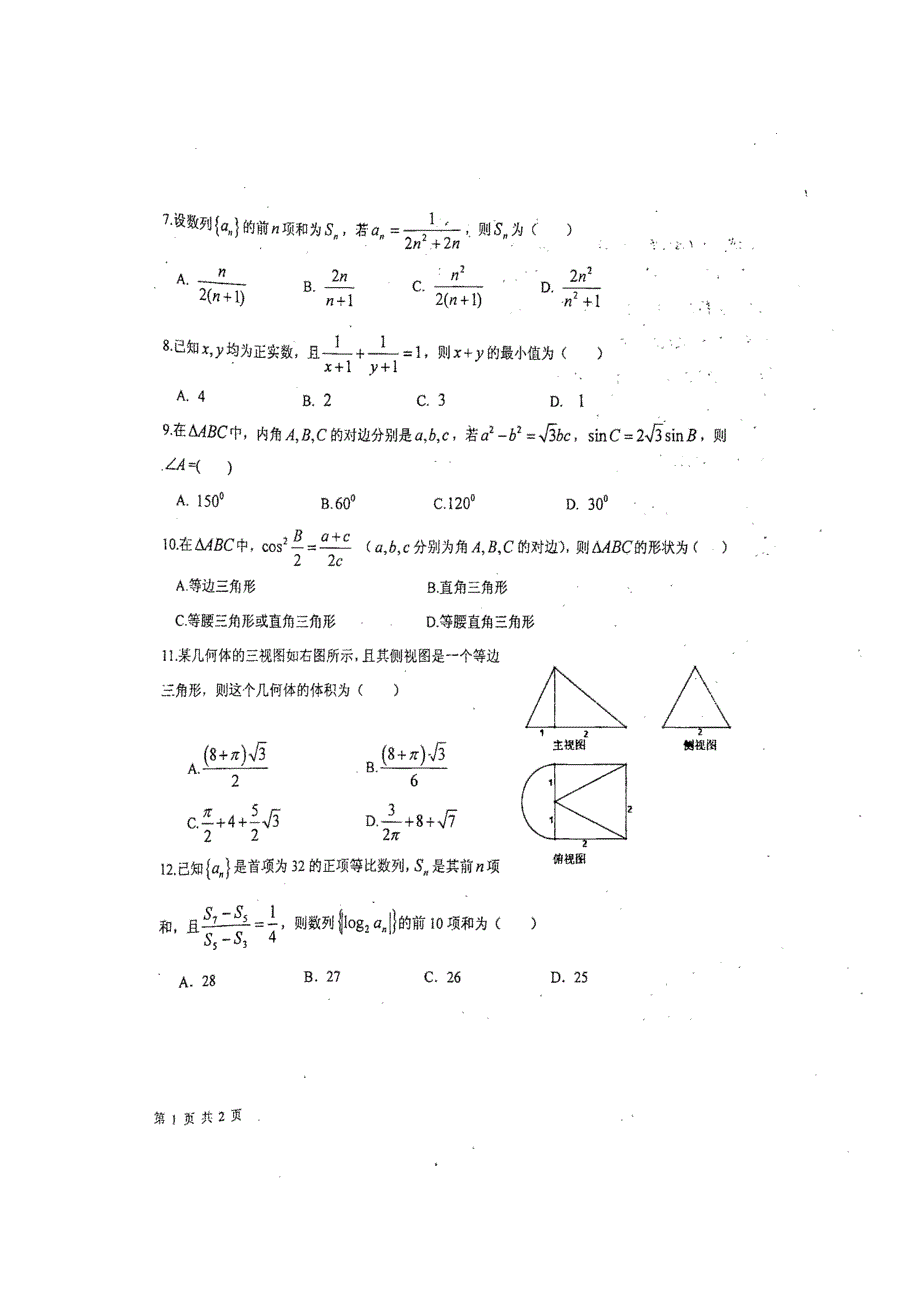 7.设数列{aₙ}的前n项和为Sₙ，若aₙ = 1/(2n²+2n)，则Sₙ为（ ）
A. n/(2(n+1)) B. 2n/(n+1) C. n²/(2(n+1)) D. 2n²/(n²+1)
8.已知x,y均为正实数，且1/(x+1)+1/(y+1)=1，则x+y的最小值为（ ）
A. 4 B. 2 C. 3 D. 1
9.在ΔABC中，内角A,B,C的对边分别是a,b,c，若a²−b²=√3bc，sinC=2√3sinB，则
∠A=( )
A. 150⁰ B.60⁰ C.120⁰ D. 30⁰
10.在ΔABC中，cos²(B/2)=(a+c)/(2c)（a,b,c分别为角A,B,C的对边），则ΔABC的形状为（ ）
A.等边三角形 B.直角三角形
C.等腰三角形或直角三角形 D.等腰直角三角形
11.某几何体的三视图如右图所示，且其侧视图是一个等边
三角形，则这个几何体的体积为（ ）
A.(8+π)√3/2 B.(8+π)√3/6
C.π/2+4+5/2√3 D.3/(2π)+8+√7
1 2 2
主视图 侧视图
1 1 2 2
俯视图
12.已知{aₙ}是首项为32的正项等比数列，Sₙ是其前n项
和，且(S₇−S₅)/(S₅−S₃)=1/4，则数列{|log₂aₙ|}的前10项和为（ ）
A. 28 B. 27 C. 26 D. 25
第 1 页 共 2 页